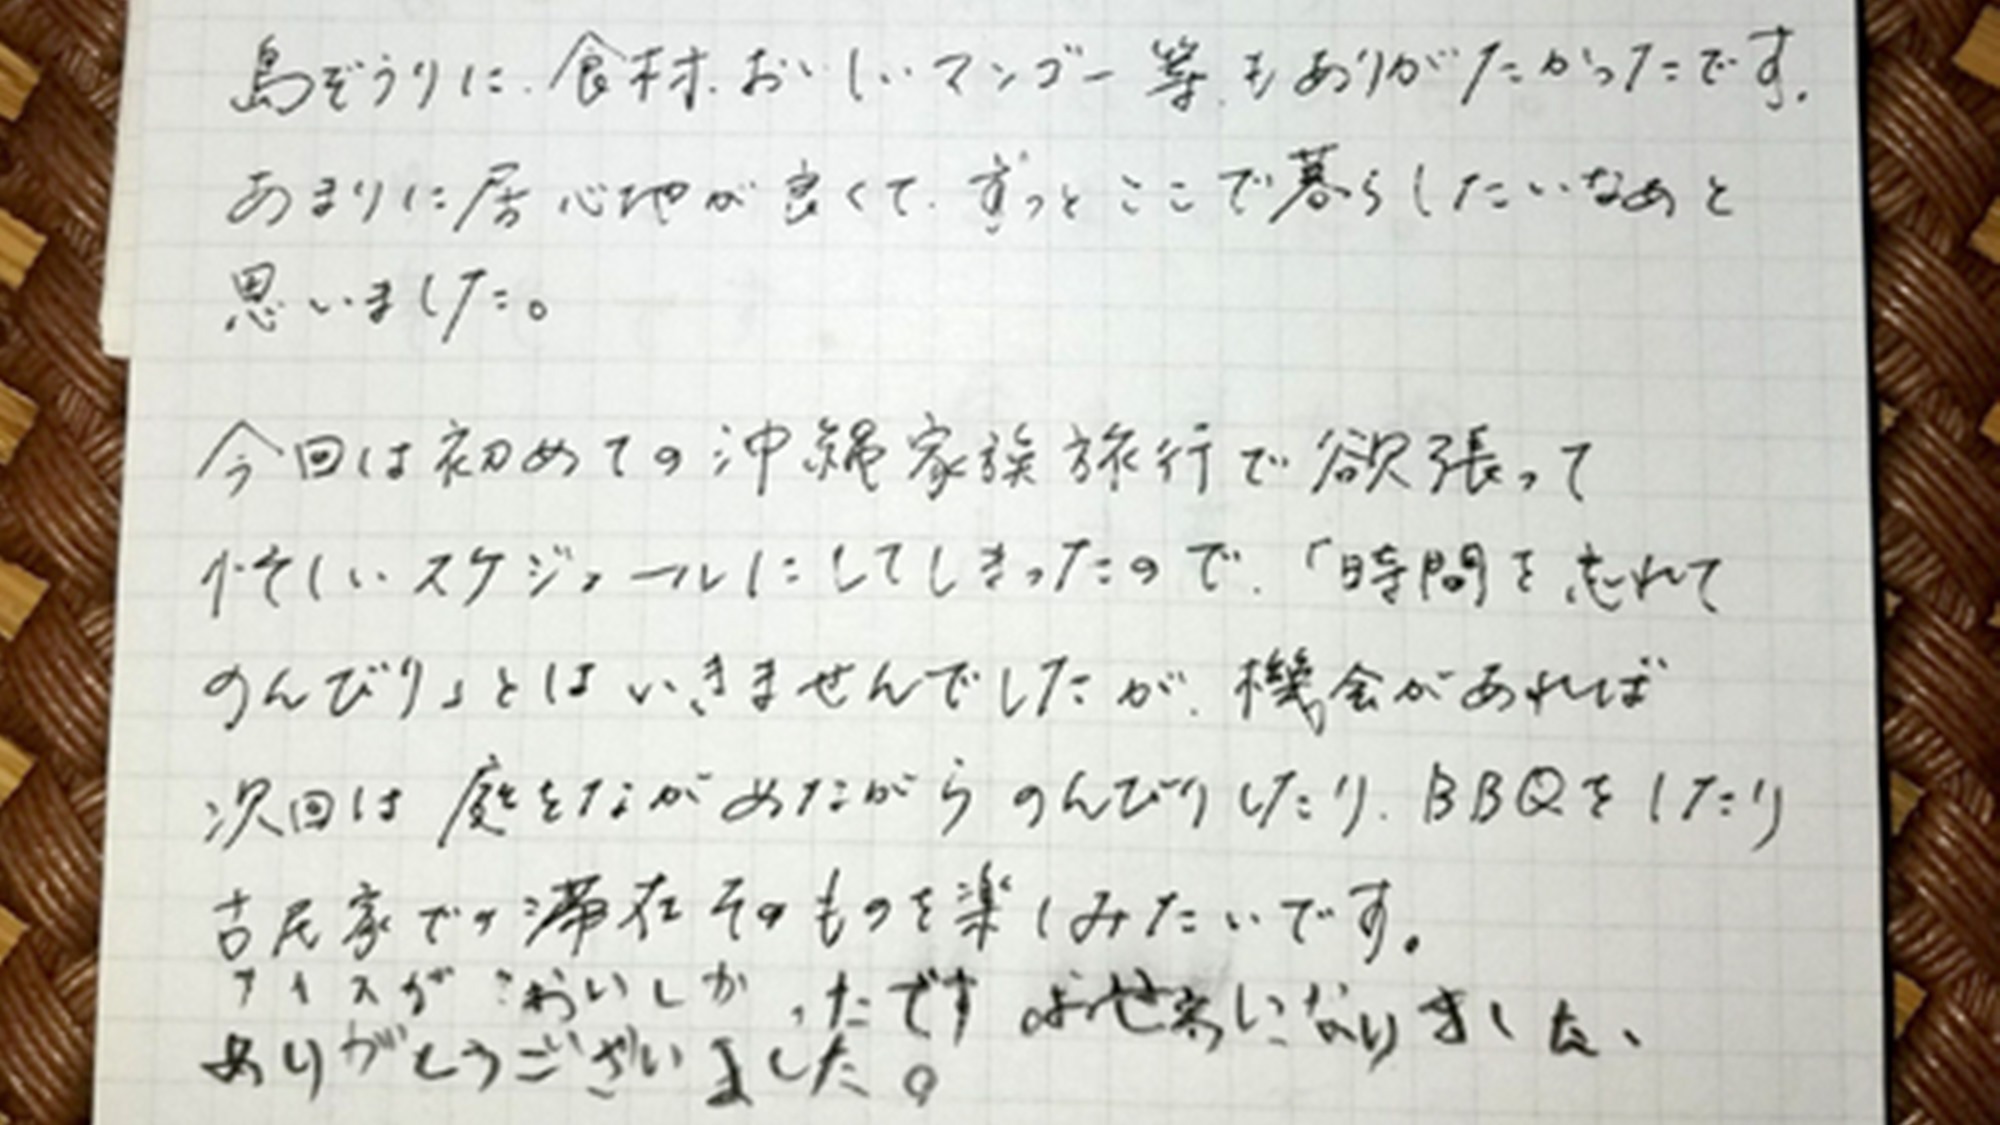 島ぞうりに、食材、おいしいマンゴー等、もありがたかったです。
あまりに居心地が良くて、ずっとここで暮らしたいなあと
思いました。
今回は初めての沖縄家族旅行で欲張って
忙しいスケジュールにしてしまったので、「時間を忘れて
のんびり」とはいきませんでしたが、機会があれば
次回は庭をながめながらのんびりしたり、BBQをしたり
古民家での滞在そのものを楽しみたいです。
アイスがおいしかったです お世わになりました、
ありがとうございました。